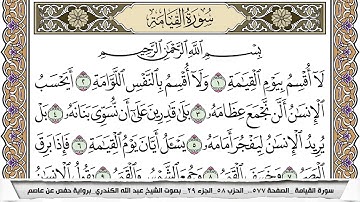 سُورَةُ القِيَامَةِ
بِسْمِ اللَّهِ الرَّحْمَٰنِ الرَّحِيمِ
لَا أُقْسِمُ بِيَوْمِ الْقِيَامَةِ ١ وَلَا أُقْسِمُ بِالنَّفْسِ اللَّوَّامَةِ ٢ أَيَحْسَبُ
الْإِنسَانُ أَلَّن نَّجْمَعَ عِظَامَهُ ٣ بَلَىٰ قَادِرِينَ عَلَىٰ أَن نُّسَوِّيَ بَنَانَهُ ٤ بَلْ
يُرِيدُ الْإِنسَانُ لِيَفْجُرَ أَمَامَهُ ٥ يَسْأَلُ أَيَّانَ يَوْمُ الْقِيَامَةِ ٦ فَإِذَا بَرِقَ
سورة القيامة _الصفحة ٥٧٧_ الحزب ٥٨_ الجزء ٢٩_ بصوت الشيخ عبد الله الكندري_ برواية حفص عن عاصم